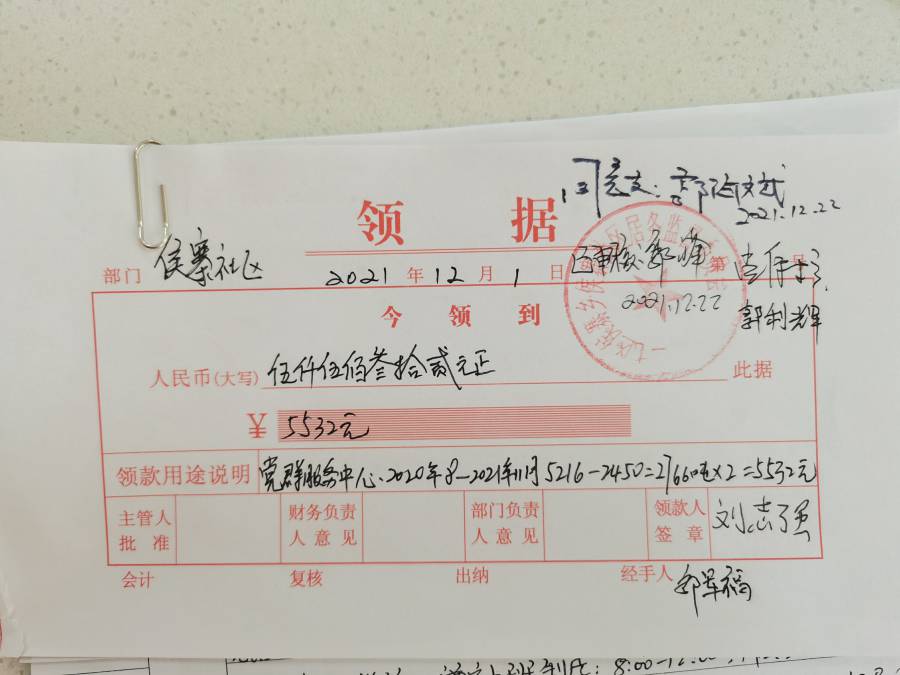 同意支:郭陆斌
2021.12.22
领 据
部门 侯寨社区 2021 年 12 月 1 日 第 号
2021.12.22
郭利辉
今领到
人民币(大写) 伍仟伍佰叁拾贰元正 此据
¥ 5532元
领款用途说明 党群服务中心.2020年8-2021年11月 5216-2450=2766吨×2=5532元
主管人批准 财务负责人意见 部门负责人意见 领款人签章 刘志强
会计 复核 出纳 经手人 郭军福
8:00-12:00